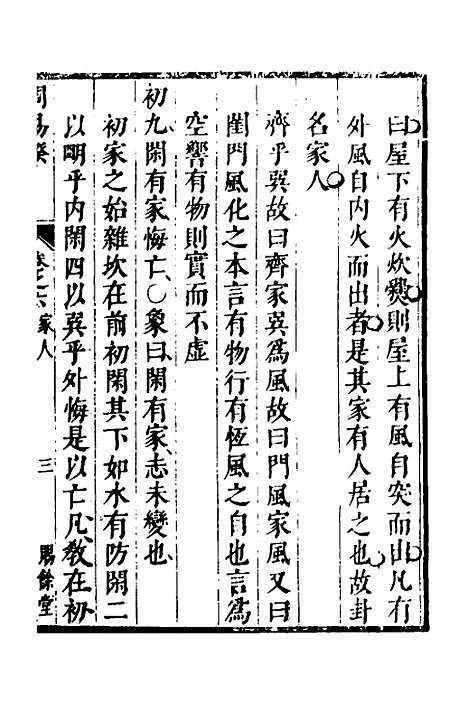 曰屋下有火炊爨則屋上有風自突而出凡有
外風自內火而出者是其家有人居之也故卦
名家人
齊乎巽故曰齊家巽爲風故曰門風家風又曰
閨門風化之本言有物行有恆風之自也言爲
空響有物則實而不虛
初九閑有家悔亡○象曰閑有家志未變也
初家之始離坎在前初閑其下如水有防閑二
以明乎內閑四以巽乎外悔是以亡凡教在初
周易揆 卷之六 家人 三 賜餘堂